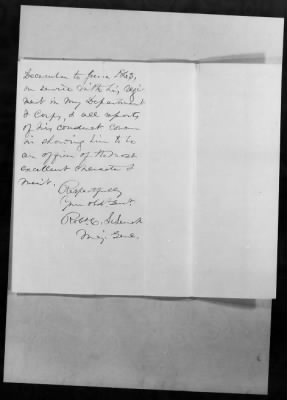 December to June 1863,
on service with his regi
ment in my Department
& Corps, & all reports
of his conduct
in showing him to be
an officer of the most
excellent character &
merit.
Respectfully
Your obt. Servt.
Robt. C. Schenck
Maj. Genl.